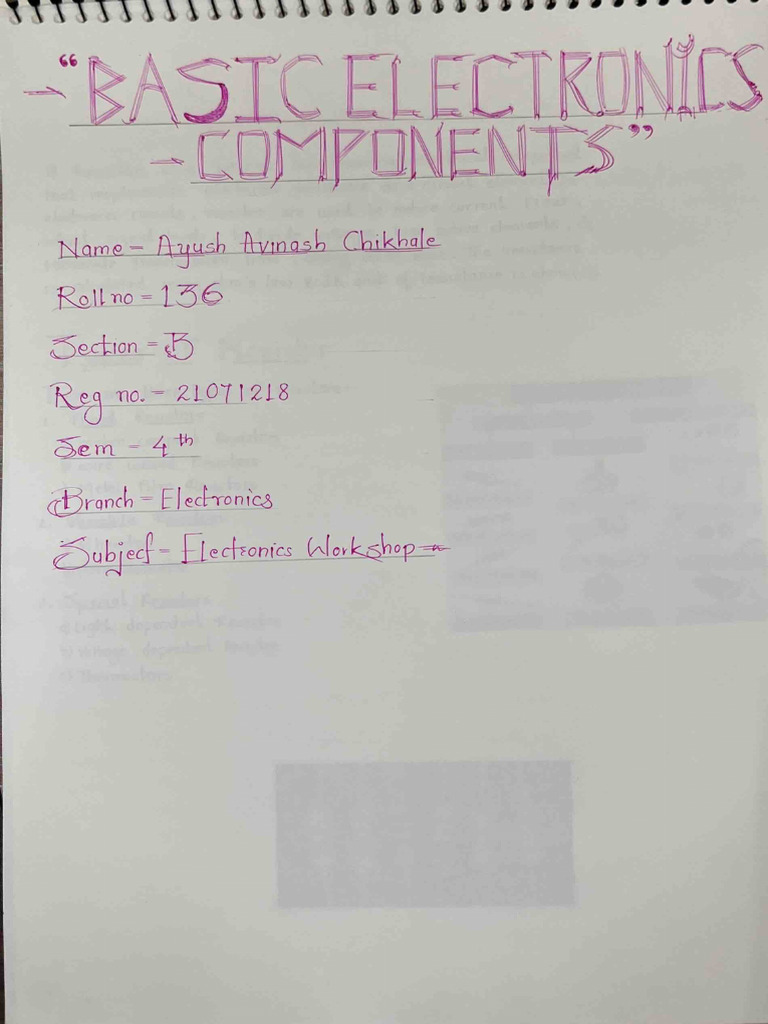 → "BASIC ELECTRONICS
→ COMPONENTS"
Name - Ayush Avinash Chikhale
Roll no = 136
Section = B
Reg no. - 21071218
Sem - 4th
Branch - Electronics
Subject - Electronics Workshop